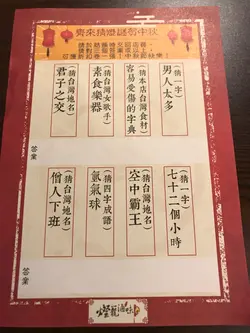 齊來猜燈謎賀中秋
七十二個小時
(猜一字)
空中霸王
(猜台灣地名)
氫氣球
(猜四字成語)
僧人下班
(猜台灣地名)
男人太多
(猜一字)
容易受傷的字典
(猜本店台灣食材)
素食樂器
(猜台灣女歌手)
君子之交
(猜台灣地名)
答案
答案